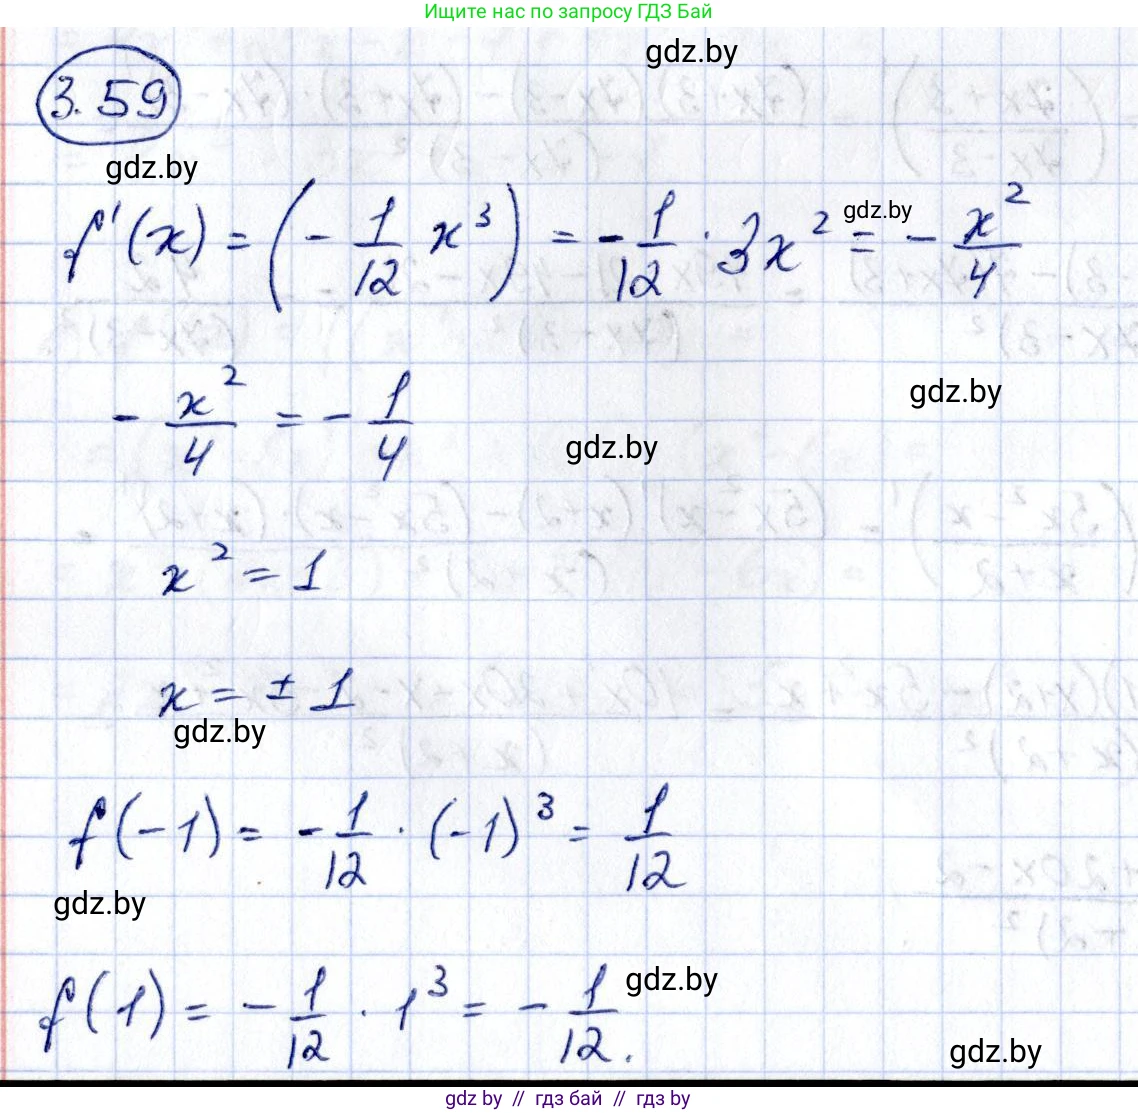 Ищите нас по запросу ГДЗ Бай
gdz.by
3.59
gdz.by
f'(x) = (- 1/12 x³) = - 1/12 · 3x² = - x²/4
gdz.by
- x²/4 = - 1/4
gdz.by
gdz.by
x² = 1
x = ± 1
gdz.by
f(-1) = - 1/12 · (-1)³ = 1/12
gdz.by
f(1) = - 1/12 · 1³ = - 1/12.
gdz.by
gdz.by
gdz by // гдз бай // гдз by